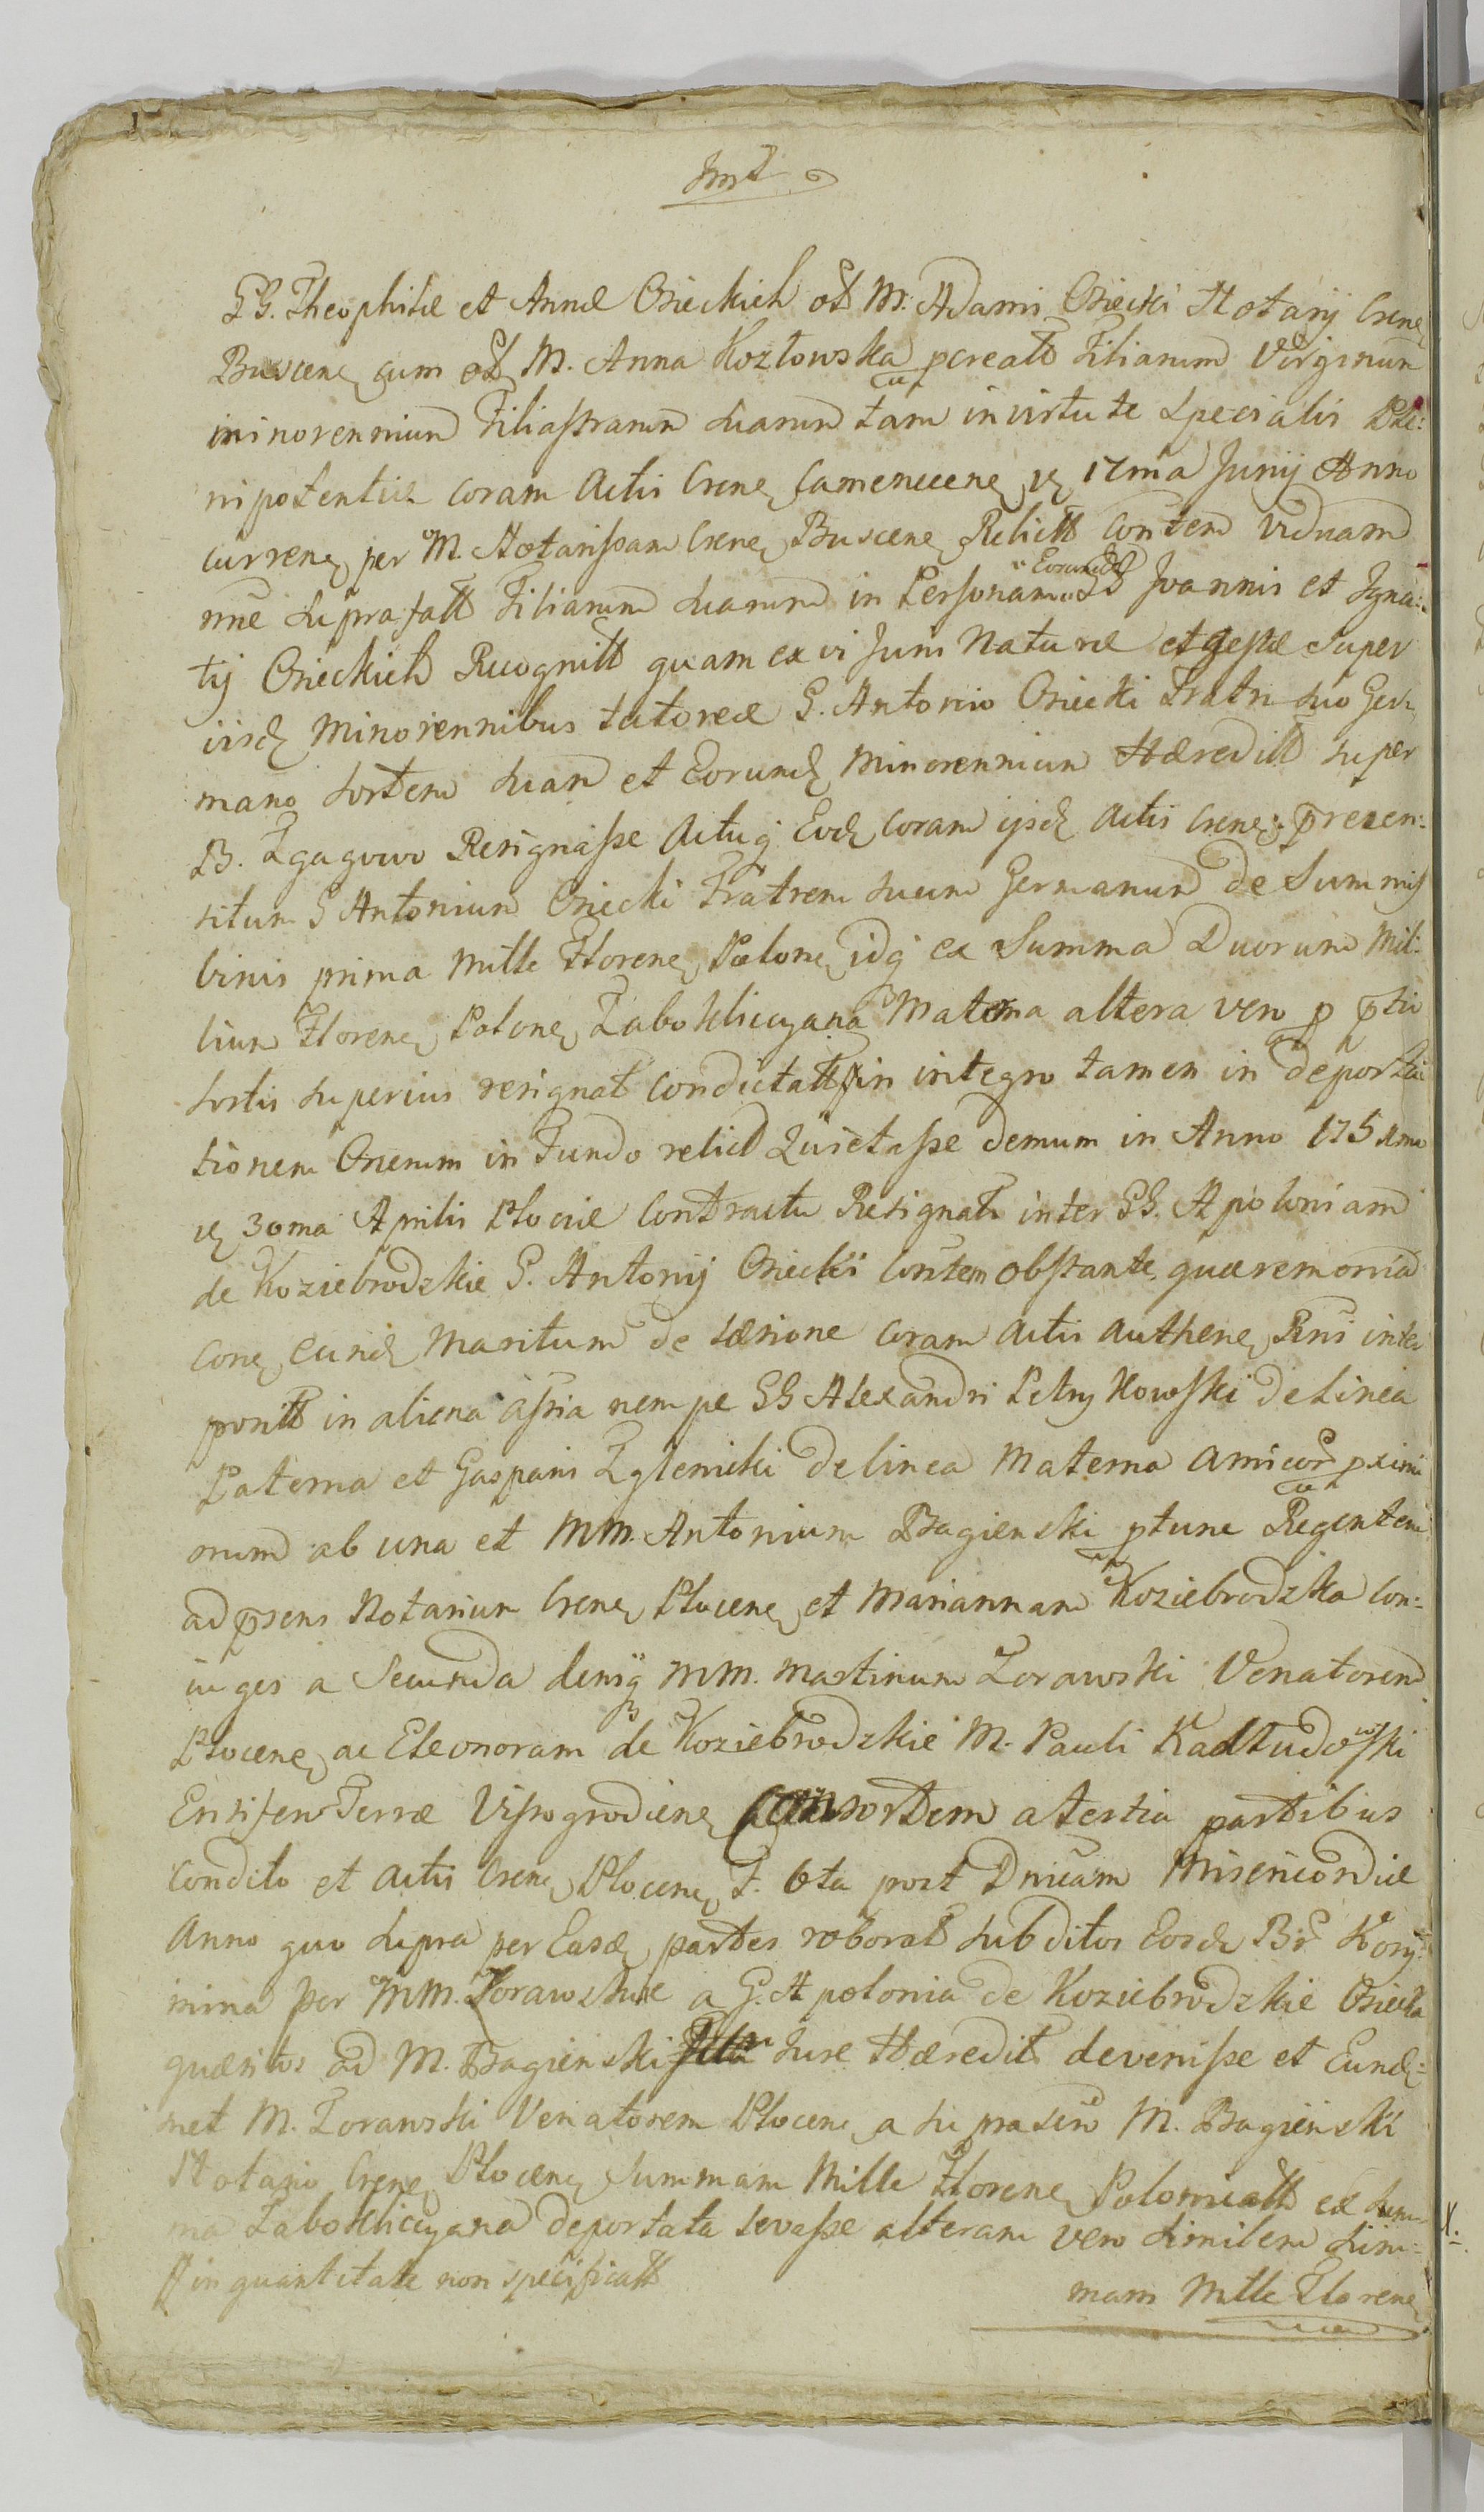 GG. Theophilæ et Annæ Osieckich ol M. Adami Osiecki Notarij Crene
Buscene cum ol M. Anna Kozłowska pcreatt Filiarum Virginum
minorennium Filiastrarum suarum tam in virtute specialis Ple:
nipotentiæ coram Actis Crene Camenecene 17ma Junij Anno
currene per M. Notarissam Crene Buscene Relictt Contem viduam
nne suprafatt Filiarum suarum in Personam Eorund Joannis et Igna:
tij Osieckich Recognitt quam ex vi Juris Naturæ et gestæ super
iisd Minorennibus tutoreæ G. Antonio Osiecki Fratri suo Ger
mano sortem suam et Eorund Minorennium Hæreditt super
B. Zgagowo Resignasse Actuq Eod coram ijsd Actis Crene prezen:
situm G Antonium Osiecki Fratrem suum Germanum de Summis
binis prima Mille Florene Polone idq ex Summa Duorum Mil:
lium Florene Polone Zabokliccyana Materna altera vero p ptio
sortis superius resignat condictatt in integro tamen in deporta
tionem Onerum in Fundo relict Quietasse demum in Anno 175
30ma Aprilis Plociæ Contractu Resignatt inter GG. Apoloniam
de Koziebrodzkie G. Antonij Osiecki Contem obstante quæremonia
cone eund Maritum de læsione coram Actis Authene Rni inter
ponitt in aliena assia nempe GG Alexandri Petrykowski de Linea
Paterna et Gaspari Zglenicki de linea Materna amicor pximi
orum ab una et MM. Antonium Bagienski ptunc Regentem
ad psens Notarium Crene Plocene et Mariannam Koziebrodzka Con:
iuges a Secunda deniq MM. Martinum Zorawski Venatorem
Plocene ac Eleonoram de Koziebrodzkie M. Pauli Kadłudowski
Ensiferi Terræ Vissogrodiene Consortem a tertia partibus
condito et Actis Crene Plocene F. 6ta post Dnicam Misericordiæ
Anno quo supra per Easd partes roborat subditos Eosd Br. Kory:
mina per MM. Zorawskie a G. Apolonia de Koziebrodzkie Osiecka
quæsitos ad M. Bagienski Jure Hæredit devenisse et Eund:
met M. Zorawski Venatorem Plocene a supra M. Bagienski
Notario Crene Plocene Summam Mille Florene Polonicatt ex Sum
ma Zabokliccyana deportata levasse alteram vero similem Sum:
// in quantitate non specificatt
mam Mille Florene